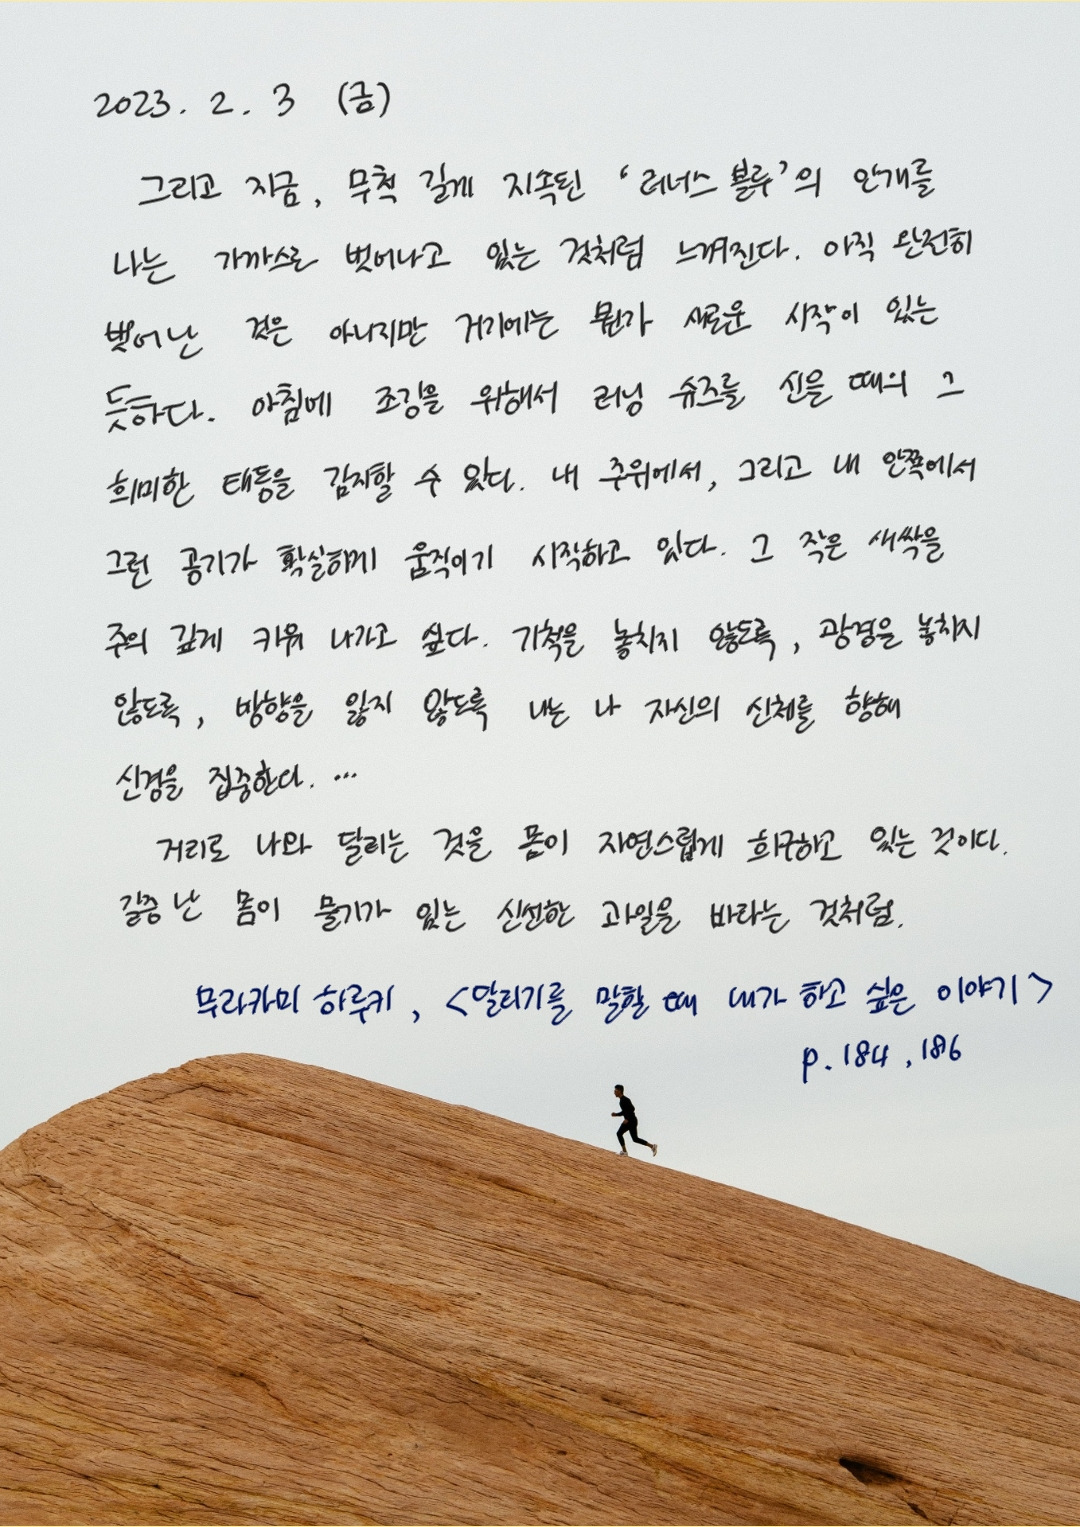 2023. 2. 3 (금)
그리고 지금, 무척 길게 지속된 '러너스 블루'의 안개를
나는 가까스로 벗어나고 있는 것처럼 느껴진다. 아직 완전히
벗어난 것은 아니지만 거기에는 뭔가 새로운 시작이 있는
듯하다. 아침에 조깅을 위해서 러닝 슈즈를 신을 때의 그
희미한 태동을 감지할 수 있다. 내 주위에서, 그리고 내 안쪽에서
그런 공기가 확실하게 움직이기 시작하고 있다. 그 작은 새싹을
주의 깊게 키워 나가고 싶다. 기척을 놓치지 않도록, 광경을 놓치지
않도록, 방향을 잃지 않도록 나는 나 자신의 신체를 향해
신경을 집중한다. …
거리로 나와 달리는 것을 몸이 자연스럽게 희구하고 있는 것이다.
갈증 난 몸이 물기가 있는 신선한 과일을 바라는 것처럼.
무라카미 하루키, <달리기를 말할 때 내가 하고 싶은 이야기>
p. 184, 186